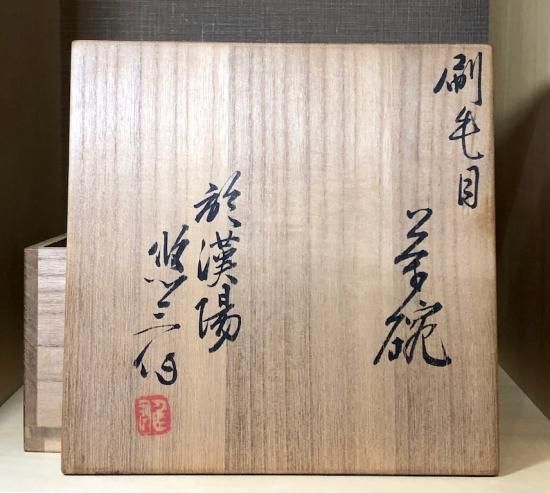 刷毛目
茶碗
於漢陽
悠三作